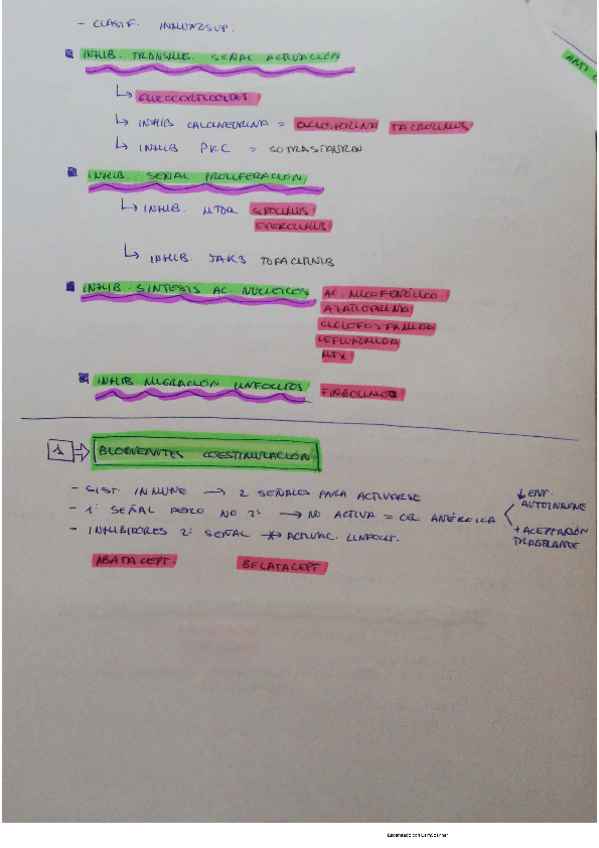 - CLASIF. INMUNOSUP.
ANTI C
INHIB. TRANSMIS. SEÑAL ACTIVACIÓN
↳ GLUCOCORTICOIDES
↳ INHIB CALCINEURINA = CICLOSPORINA TACROLIMUS
↳ INHIB PKC = SOTRASTAURIN
INHIB. SEÑAL PROLIFERACIÓN
↳ INHIB. MTOR SIROLIMUS
EVEROLIMUS
↳ INHIB. JAK3 TOFACITINIB
INHIB. SÍNTESIS AC. NUCLEICOS AC. MICOFENÓLICO
AZATIOPRINA
CICLOFOSFAMIDA
LEFLUNOMIDA
MTX
INHIB MIGRACIÓN LINFOCITOS FINGOLIMOD
1 ⇒ BLOQUEANTES COESTIMULACIÓN
- SIST. INMUNE → 2 SEÑALES PARA ACTIVARSE
↓ ENF. AUTOINMUNE
- 1ª SEÑAL PERO NO 2ª → NO ACTIVA = CEL ANÉRGICA
+ ACEPTACIÓN TRASPLANTE
- INHIBIDORES 2ª SEÑAL ACTIVAC. LINFOCIT.
ABATACEPT. BELATACEPT
Escaneado con CamScanner